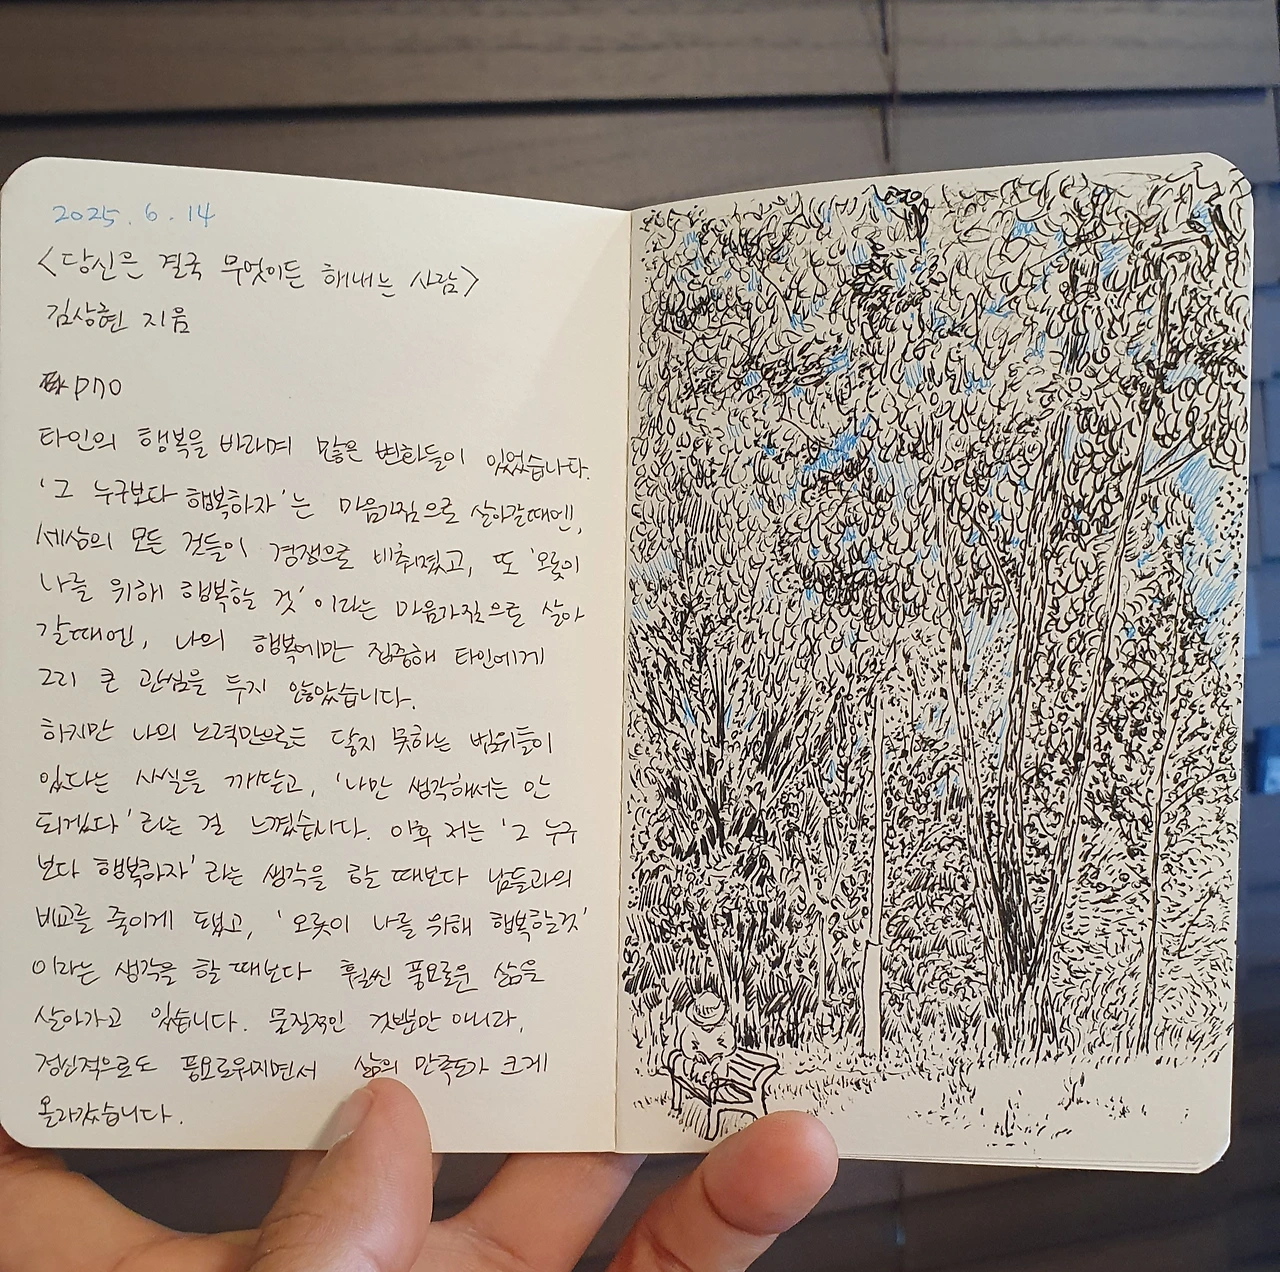 2025. 6. 14
<당신은 결국 무엇이든 해내는 사람>
김상현 지음
p170
타인의 행복을 바라며 많은 변화들이 있었습니다.
'그 누구보다 행복하자'는 마음가짐으로 살아갈때엔,
세상의 모든 것들이 경쟁으로 비춰졌고, 또 '오롯이
나를 위해 행복할 것' 이라는 마음가짐으로 살아
갈때엔, 나의 행복에만 집중해 타인에게
그리 큰 관심을 두지 않았습니다.
하지만 나의 노력만으로는 닿지 못하는 범위들이
있다는 사실을 깨닫고, '나만 생각해서는 안
되겠다' 라는 걸 느꼈습니다. 이후 저는 '그 누구
보다 행복하자' 라는 생각을 할 때보다 남들과의
비교를 줄이게 됐고, '오롯이 나를 위해 행복할것'
이라는 생각을 할 때보다 훨씬 풍요로운 삶을
살아가고 있습니다. 물질적인 것뿐만 아니라,
정신적으로도 풍요로워지면서 삶의 만족도가 크게
올라갔습니다.